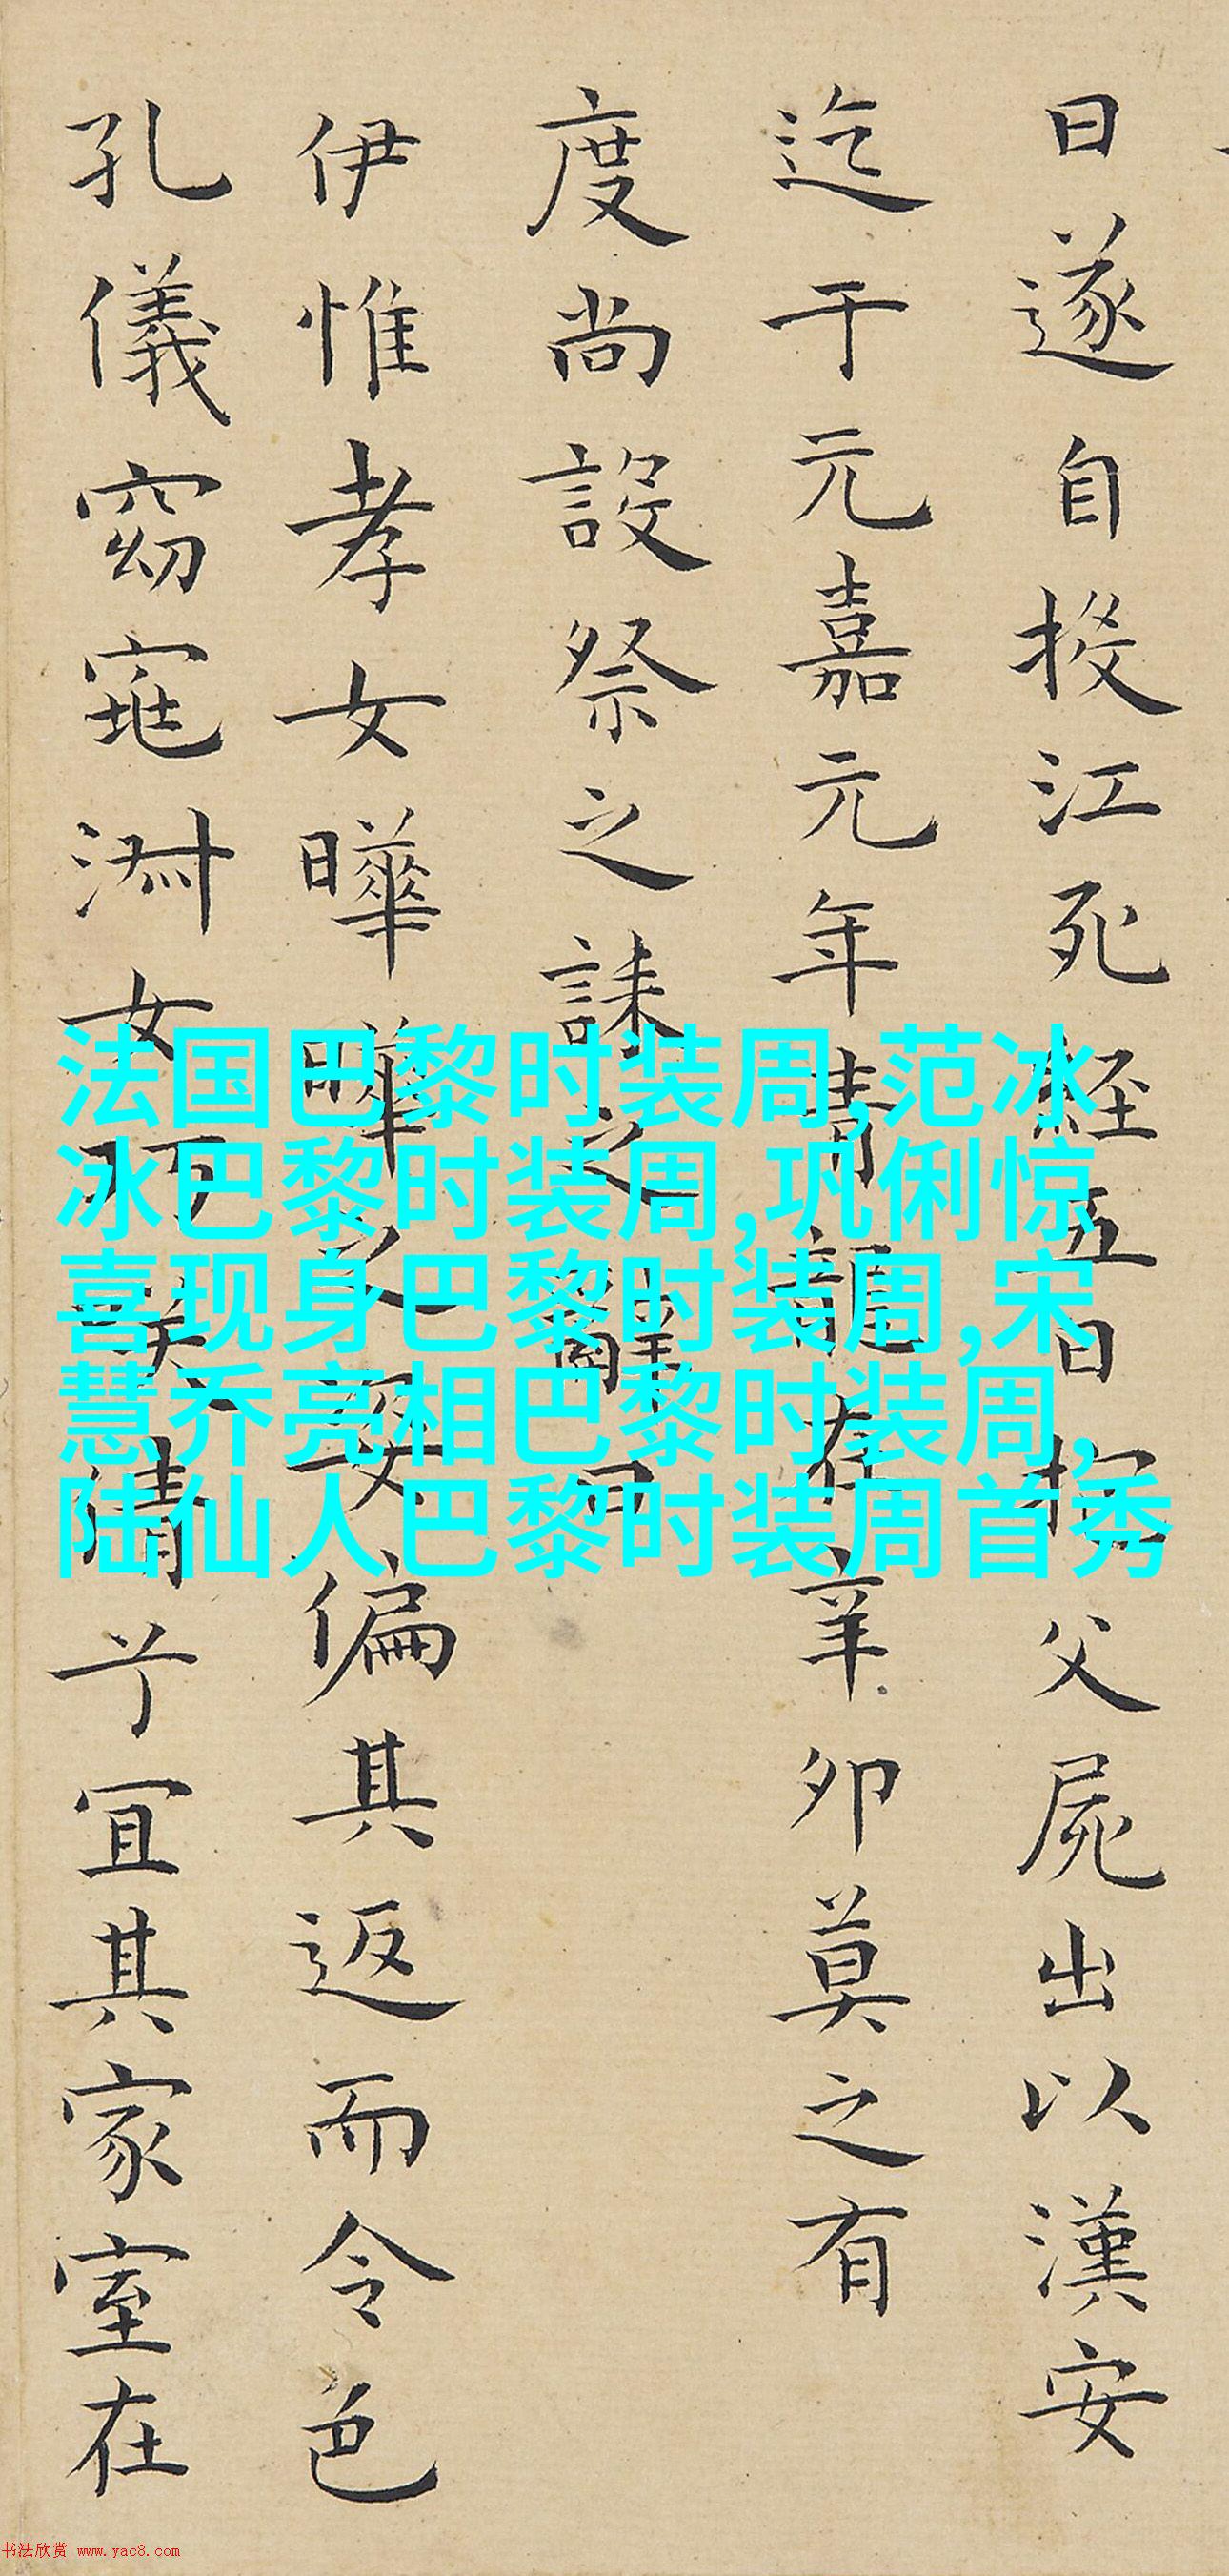 日遂自投江死經五日抱父屍出以漢安
迄于元嘉元年青龍在辛卯莫之有
度尚設祭之誄之辭曰
伊惟孝女曄曄之姿偏其返而令色
孔儀窈窕淑女巧笑倩兮宜其家室在
法国巴黎时装周,范冰
冰巴黎时装周,巩俐惊
喜现身巴黎时装周,宋
慧乔亮相巴黎时装周,
陆仙人巴黎时装周首秀
书法欣赏 www.yac8.com